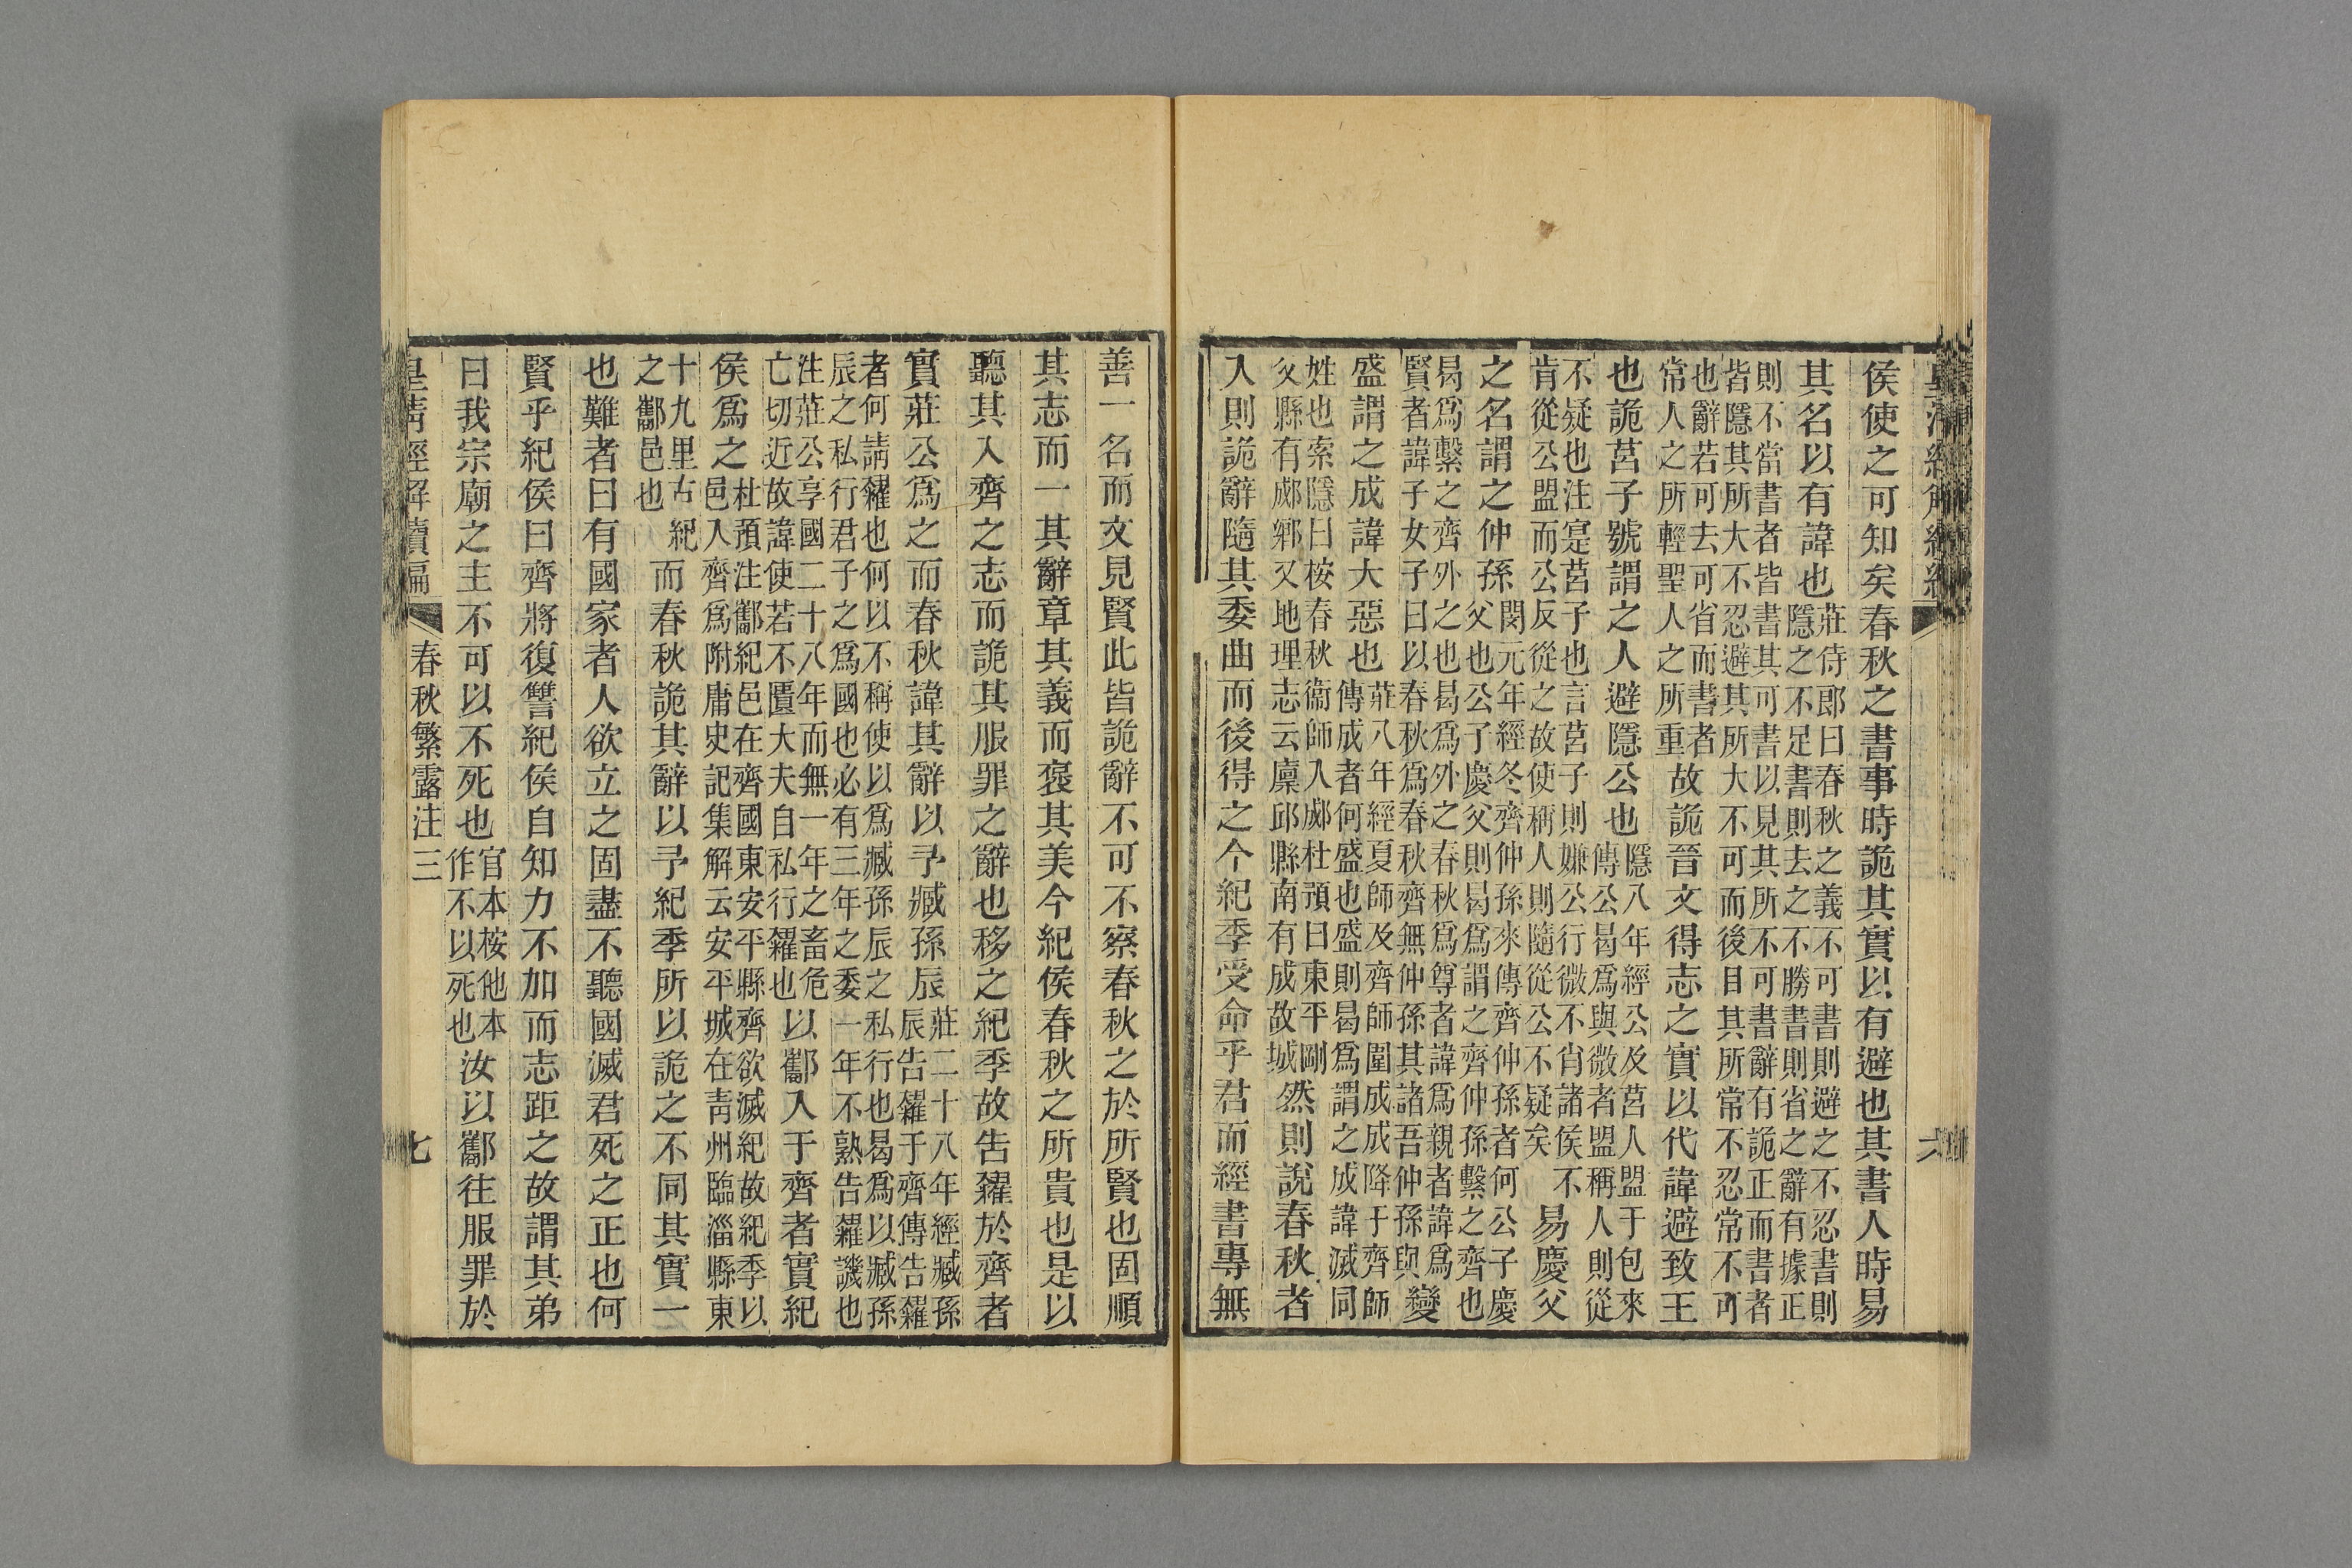 侯使之可知矣春秋之書事時詭其實以有避也其書人時易
其名以有諱也
莊侍郎曰春秋之義不可書則避之不忍書則
隱之不足書則去之不勝書則省之辭有據正
則不當書者皆書其可書以見其所不可書辭有詭正而書者
皆隱其所大不忍避其所大不可而後目其所常不忍常不可
也辭若可去可省而書者
常人之所輕聖人之所重
故詭晉文得志之實以代諱避致王
也詭莒子號謂之人避隱公也
隱八年經公及莒人盟于包來
傳公曷爲與微者盟稱人則從
不疑也注寔莒子也言莒子則嫌公行微不肖諸侯不
肯從公盟而公反從之故使稱人則隨從公不疑矣
易慶父
之名謂之仲孫
閔元年經冬齊仲孫來傳齊仲孫者何公子慶
父也公子慶父則曷爲謂之齊仲孫繫之齊也
曷爲繫之齊外之也曷爲外之春秋爲尊者諱爲親者諱爲
賢者諱子女子曰以春秋爲春秋齊無仲孫其諸吾仲孫與
變
盛謂之成諱大惡也
莊八年經夏師及齊師圍成成降于齊師
傳成者何盛也盛則曷爲謂之成諱滅同
姓也索隱曰桉春秋衞師入郕杜預曰東平剛
父縣有郕鄉又地理志云廩邱縣南有成故城
然則說春秋者
入則詭辭隨其委曲而後得之今紀季受命乎君而經書專無
善一名而文見賢此皆詭辭不可不察春秋之於所賢也固順
其志而一其辭章其義而褒其美今紀侯春秋之所貴也是以
聽其入齊之志而詭其服罪之辭也移之紀季故告糴於齊者
實莊公爲之而春秋諱其辭以予臧孫辰
莊二十八年經臧孫
辰告糴于齊傳告糴
者何請糴也何以不稱使以爲臧孫辰之私行也曷爲以臧孫
辰之私行君子之爲國也必有三年之委一年不熟告糴譏也
注莊公享國二十八年而無一年之畜危
亡切近故諱使若不匱大夫自私行糴也
以酅入于齊者實紀
侯爲之
杜預注酅紀邑在齊國東安平縣齊欲滅紀故紀季以
邑入齊爲附庸史記集解云安平城在青州臨淄縣東
十九里古紀
之酅邑也
而春秋詭其辭以予紀季所以詭之不同其實一
也難者曰有國家者人欲立之固盡不聽國滅君死之正也何
賢乎紀侯曰齊將復讐紀侯自知力不加而志距之故謂其弟
曰我宗廟之主不可以不死也
官本桉他本
作不以死也
汝以酅往服罪於
皇清經解續編
春秋繁露注三
七